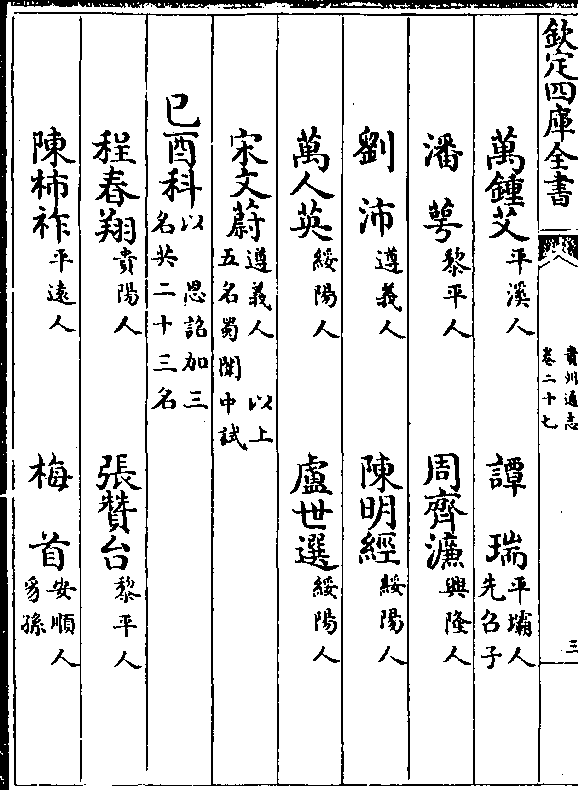 欽定四庫全書
貴州通志
卷二十七
三
萬鍾艾平溪人　譚瑞平壩人先召子
潘萼黎平人　周齊濂興隆人
劉沛遵義人　陳明經綏陽人
萬人英綏陽人　盧世選綏陽人
宋文蔚遵義人　以上五名蜀闈中試
己酉科以　恩詔加三名共二十三名
程春翔貴陽人　張贊台黎平人
陳柿祚平遠人　梅首安順人豸孫